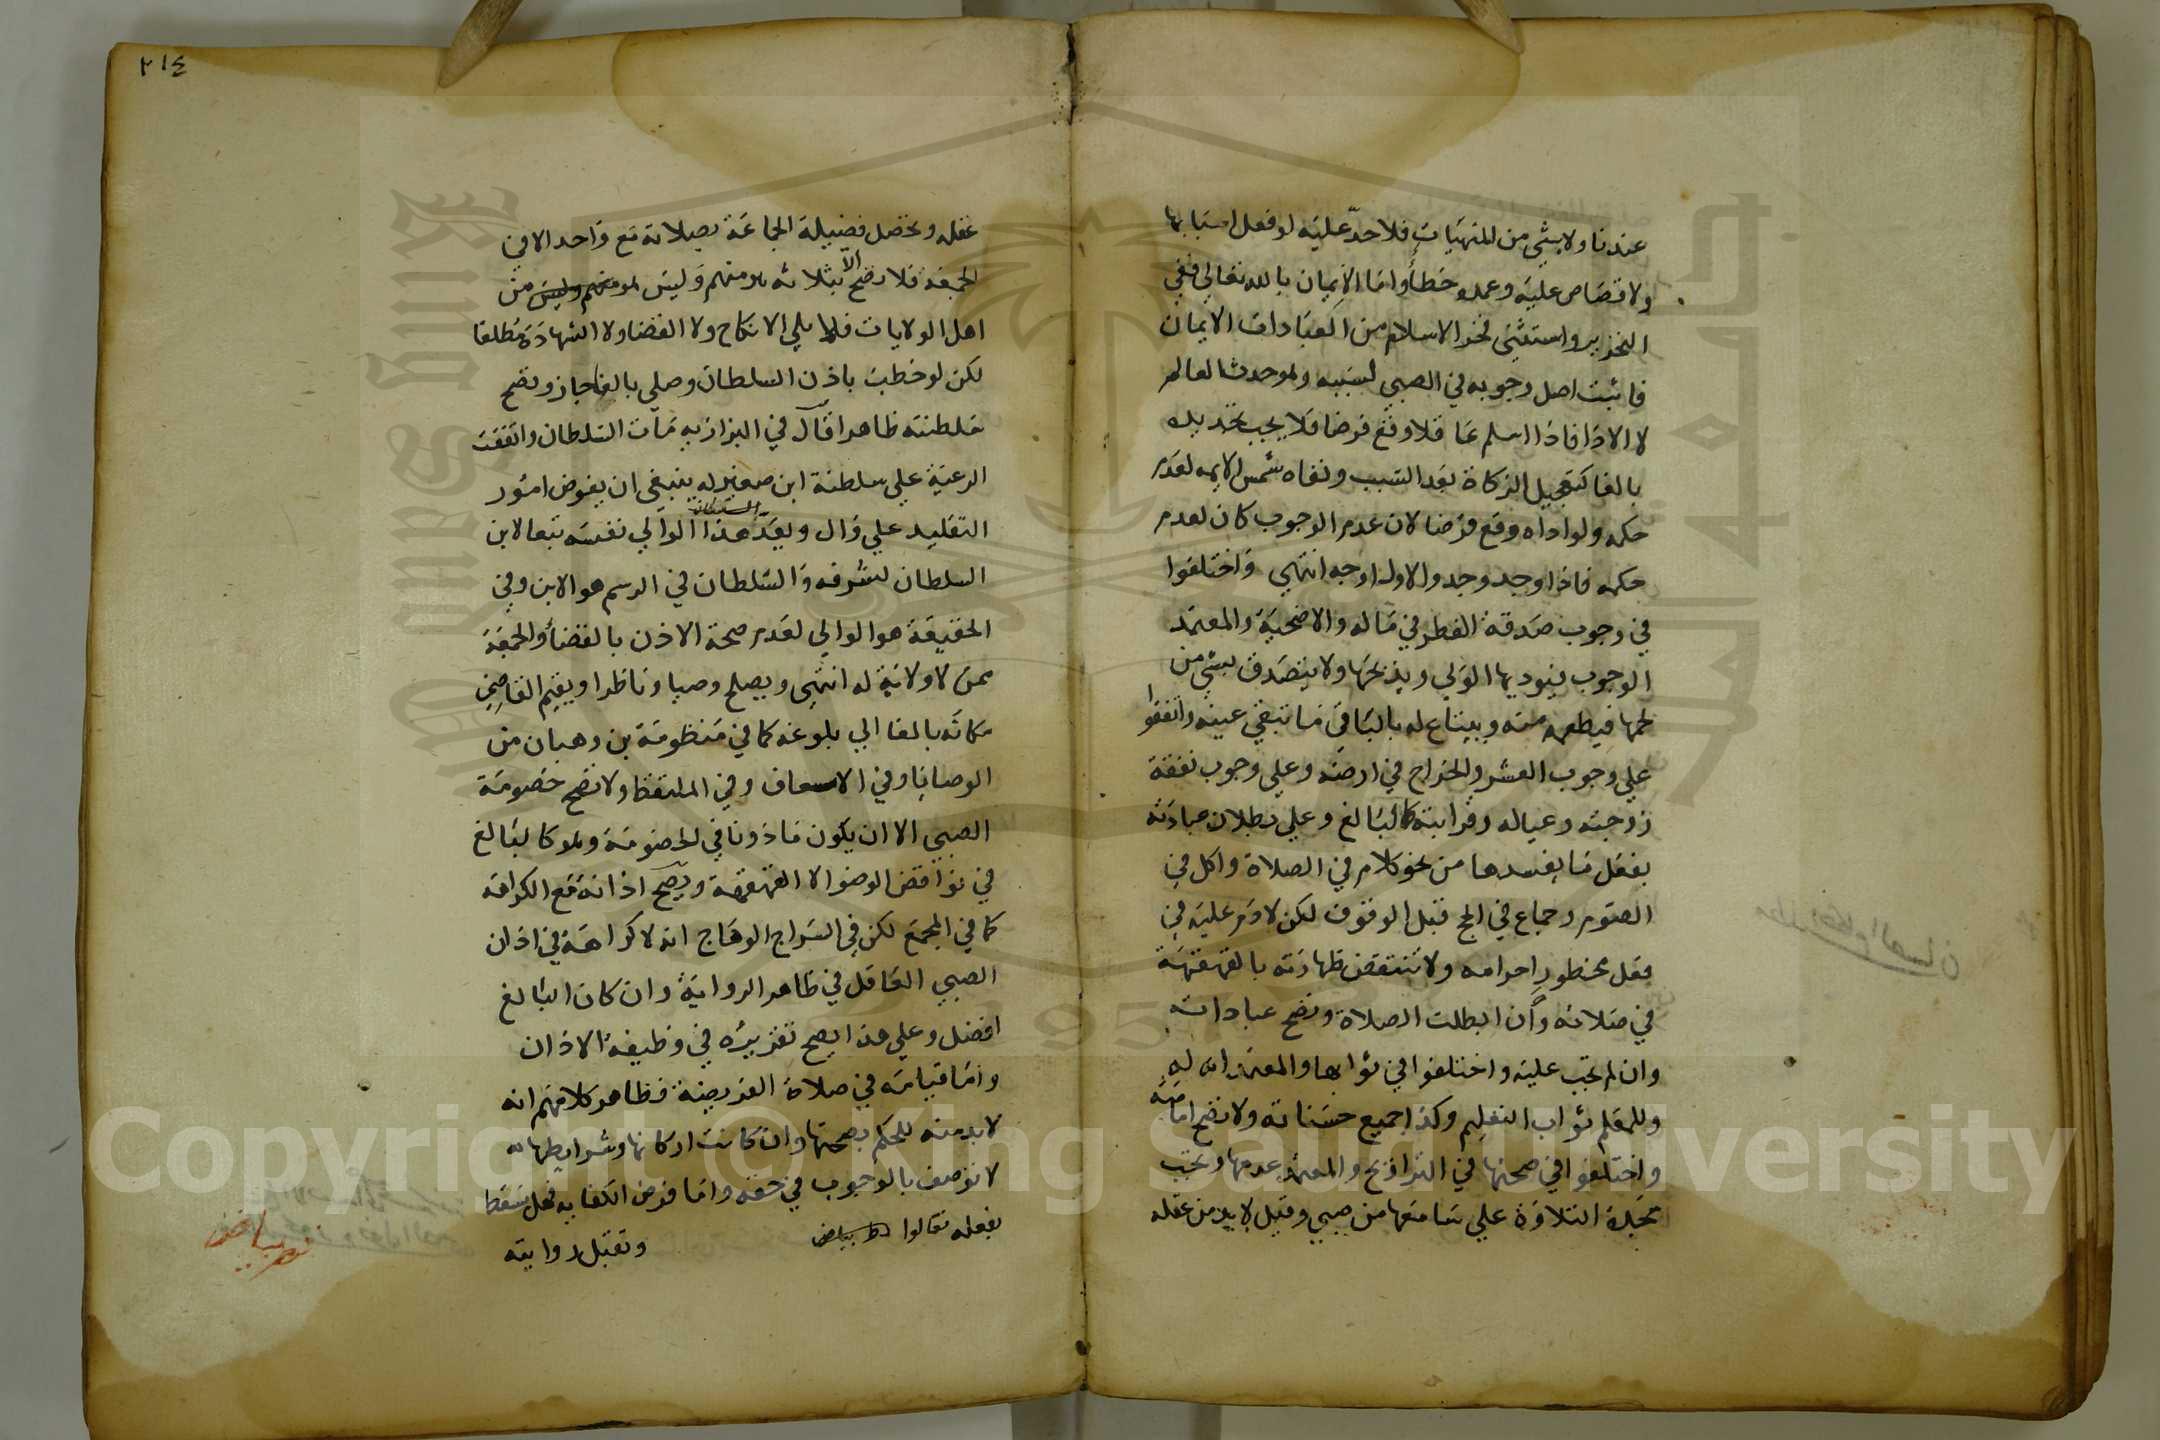 عندنا ولا بشي من المنهيات فلا حدّ عليه لو فعل اسبابها
ولا قصاص عليه وعمده خطأ واما الايمان بالله تعالي ففي
التحرير واستثني فخر الاسلام من العبادات الايمان
فاثبت اصل وجوبه في الصبي لسببه وهو حدث العالم
لا الاداء فاذا اسلم عاقلا وقع فرضا فلا يجب تجديده
بالغا كتعجيل الزكاة بعد السبب ونفاه شمس الايمه لعدم
حكمه ولو اداه وقع فرضا لان عدم الوجوب كان لعدم
حكمه فاذا وجد وجد والاول اوجه انتهي واختلفوا
في وجوب صدقة الفطر في ماله والاضحية والمعتمد
الوجوب فيوديها الولي ويذبحها ولا يتصدق بشي من
لحمها فيطعمه منه ويبتاع له بالباقي ما تبقي عينه واتفقوا
علي وجوب العشر والخراج في ارضه وعلي وجوب نفقة
زوجته وعياله وقرابته كالبالغ وعلي بطلان عبادته
بفعل ما يفسدها من نحو كلام في الصلاة واكل في
الصوم وجماع في الحج قبل الوقوف لكن لا دم عليه في
فعل محظور احرامه ولا تنتقض طهارته بالقهقهة
في صلاته وان ابطلت الصلاة وتصح عباداته
وان لم تجب عليه واختلفوا في ثوابها والمعتمد انه له
وللمعلم ثواب التعليم وكذا جميع حسناته ولا تصح امامته
واختلفوا في صحتها في التراويح والمعتمد عدمها وتجب
سجدة التلاوة علي سامعها من صبي وقيل لا بد من عقله
٢١٤
عقله وتحصل فضيلة الجماعة بصلاته مع واحد الا في
الجمعة فلا تصح الا بثلاثة هو منهم وليس هو من
اهل الولايات فلا يلي الانكاح ولا القضا ولا الشهادة مطلقا
لكن لو خطب باذن السلطان وصلي بالغ جاز وتصح
سلطنته ظاهرا قال في البزازيه مات السلطان واتفقت
الرعية علي سلطنة ابن صغير له ينبغي ان يفوض امور
التقليد علي وال ويعدّ هذا الوالي نفسه تبعا لابن
السلطان
السلطان لشرفه والسلطان في الرسم هو الابن وفي
الحقيقة هو الوالي لعدم صحة الاذن بالقضاء والجمعة
ممن لا ولاية له انتهي ويصلح وصيا وناظرا ويقيم القاضي
مكانه بالغا الي بلوغه كما في منظومة بن وهبان من
الوصايا وفي الاسعاف وفي الملتقط ولا تصح خصومة
الصبي الا ان يكون ماذونا في الخصومة وهو كالبالغ
في نواقض الوضو الا القهقهة ويصح اذانه مع الكراهة
كما في المجمع لكن في السراج الوهاج انه لا كراهة في اذان
الصبي العاقل في ظاهر الرواية وان كان البالغ
افضل وعلي هذا يصح تقريره في وظيفة الاذان
واما قيامه في صلاة الفريضة فظاهر كلامهم انه
لا بد منه للحكم بصحتها وان كانت اركانها وشرايطها
لا توصف بالوجوب في حقه واما فرض الكفايه فهل يسقط
بفعله فقالوا
وتقبل روايته
Copyright © King Saud University
King Saud University
1957